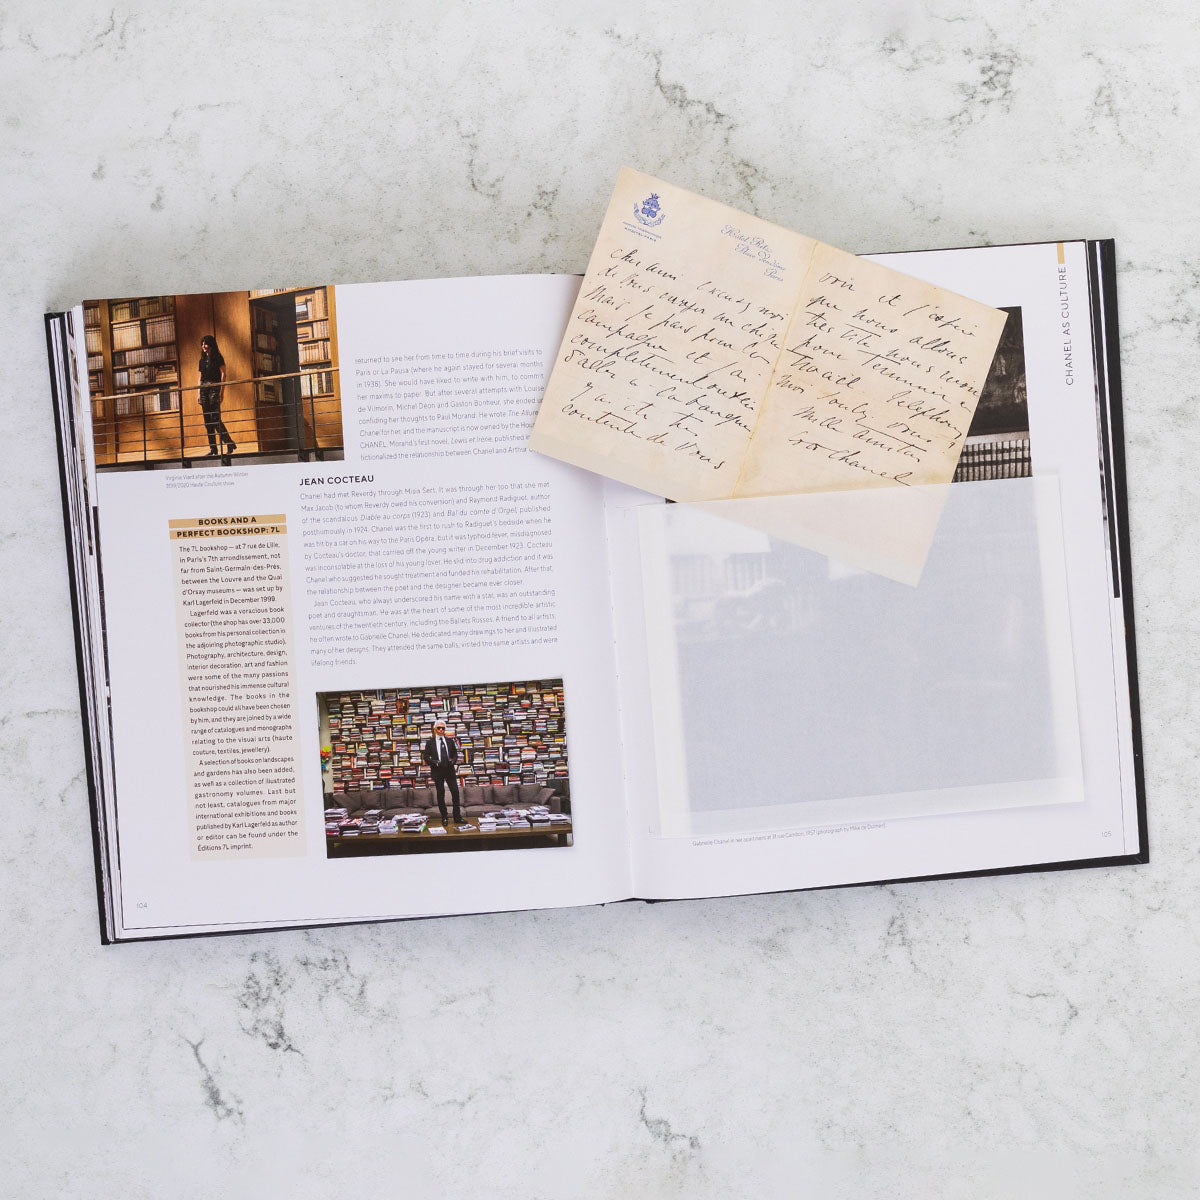 returned to see her from time to time during his brief visits to
Paris or La Pausa (where he again stayed for several months
in 1938). She would have liked to write with him, to commit
her maxims to paper. But after several attempts with Louise
de Vilmorin, Michel Déon and Gaston Bonheur, she ended up
confiding her thoughts to Paul Morand. He wrote The Allure
Chanel for her, and the manuscript is now owned by the Hou
CHANEL. Morand's first novel, Lewis et Irène, published in
fictionalized the relationship between Chanel and Arthur
Virginie Viard after the Autumn-Winter
2019/2020 Haute Couture show.
JEAN COCTEAU
Chanel had met Reverdy through Misia Sert. It was through her too that she met
Max Jacob (to whom Reverdy owed his conversion) and Raymond Radiguet, author
of the scandalous Diable au corps (1923) and Bal du comte d'Orgel, published
posthumously in 1924. Chanel was the first to rush to Radiguet's bedside when he
was hit by a car on his way to the Paris Opéra, but it was typhoid fever, misdiagnosed
by Cocteau's doctor, that carried off the young writer in December 1923. Cocteau
was inconsolable at the loss of his young lover. He slid into drug addiction and it was
Chanel who suggested he sought treatment and funded his rehabilitation. After that,
the relationship between the poet and the designer became ever closer.
Jean Cocteau, who always underscored his name with a star, was an outstanding
poet and draughtsman. He was at the heart of some of the most incredible artistic
ventures of the twentieth century, including the Ballets Russes. A friend to all artists,
he often wrote to Gabrielle Chanel. He dedicated many drawings to her and illustrated
many of her designs. They attended the same balls, visited the same artists and were
lifelong friends.
BOOKS AND A
PERFECT BOOKSHOP: 7L
The 7L bookshop — at 7 rue de Lille,
in Paris's 7th arrondissement, not
far from Saint-Germain-des-Prés,
between the Louvre and the Quai
d'Orsay museums — was set up by
Karl Lagerfeld in December 1999.
Lagerfeld was a voracious book
collector (the shop has over 33,000
books from his personal collection in
the adjoining photographic studio).
Photography, architecture, design,
interior decoration, art and fashion
were some of the many passions
that nourished his immense cultural
knowledge. The books in the
bookshop could all have been chosen
by him, and they are joined by a wide
range of catalogues and monographs
relating to the visual arts (haute
couture, textiles, jewellery).
A selection of books on landscapes
and gardens has also been added,
as well as a collection of illustrated
gastronomy volumes. Last but
not least, catalogues from major
international exhibitions and books
published by Karl Lagerfeld as author
or editor can be found under the
Éditions 7L imprint.
104
Hôtel Ritz
Place Vendôme
Paris
Cher ami. Excusez moi
de vous envoyer un chèque
Mais je pars pour la
campagne et j'ai
complètement oublié
d'aller à la banque
contente de vous
voir et j'espère
que nous allons
très vite nous
pour
travail
vous
Mille
Chanel
CHANEL AS CULTURE
Gabrielle Chanel in her apartment at 31 rue Cambon, 1957 (photograph by Mike de Dulmen).
105